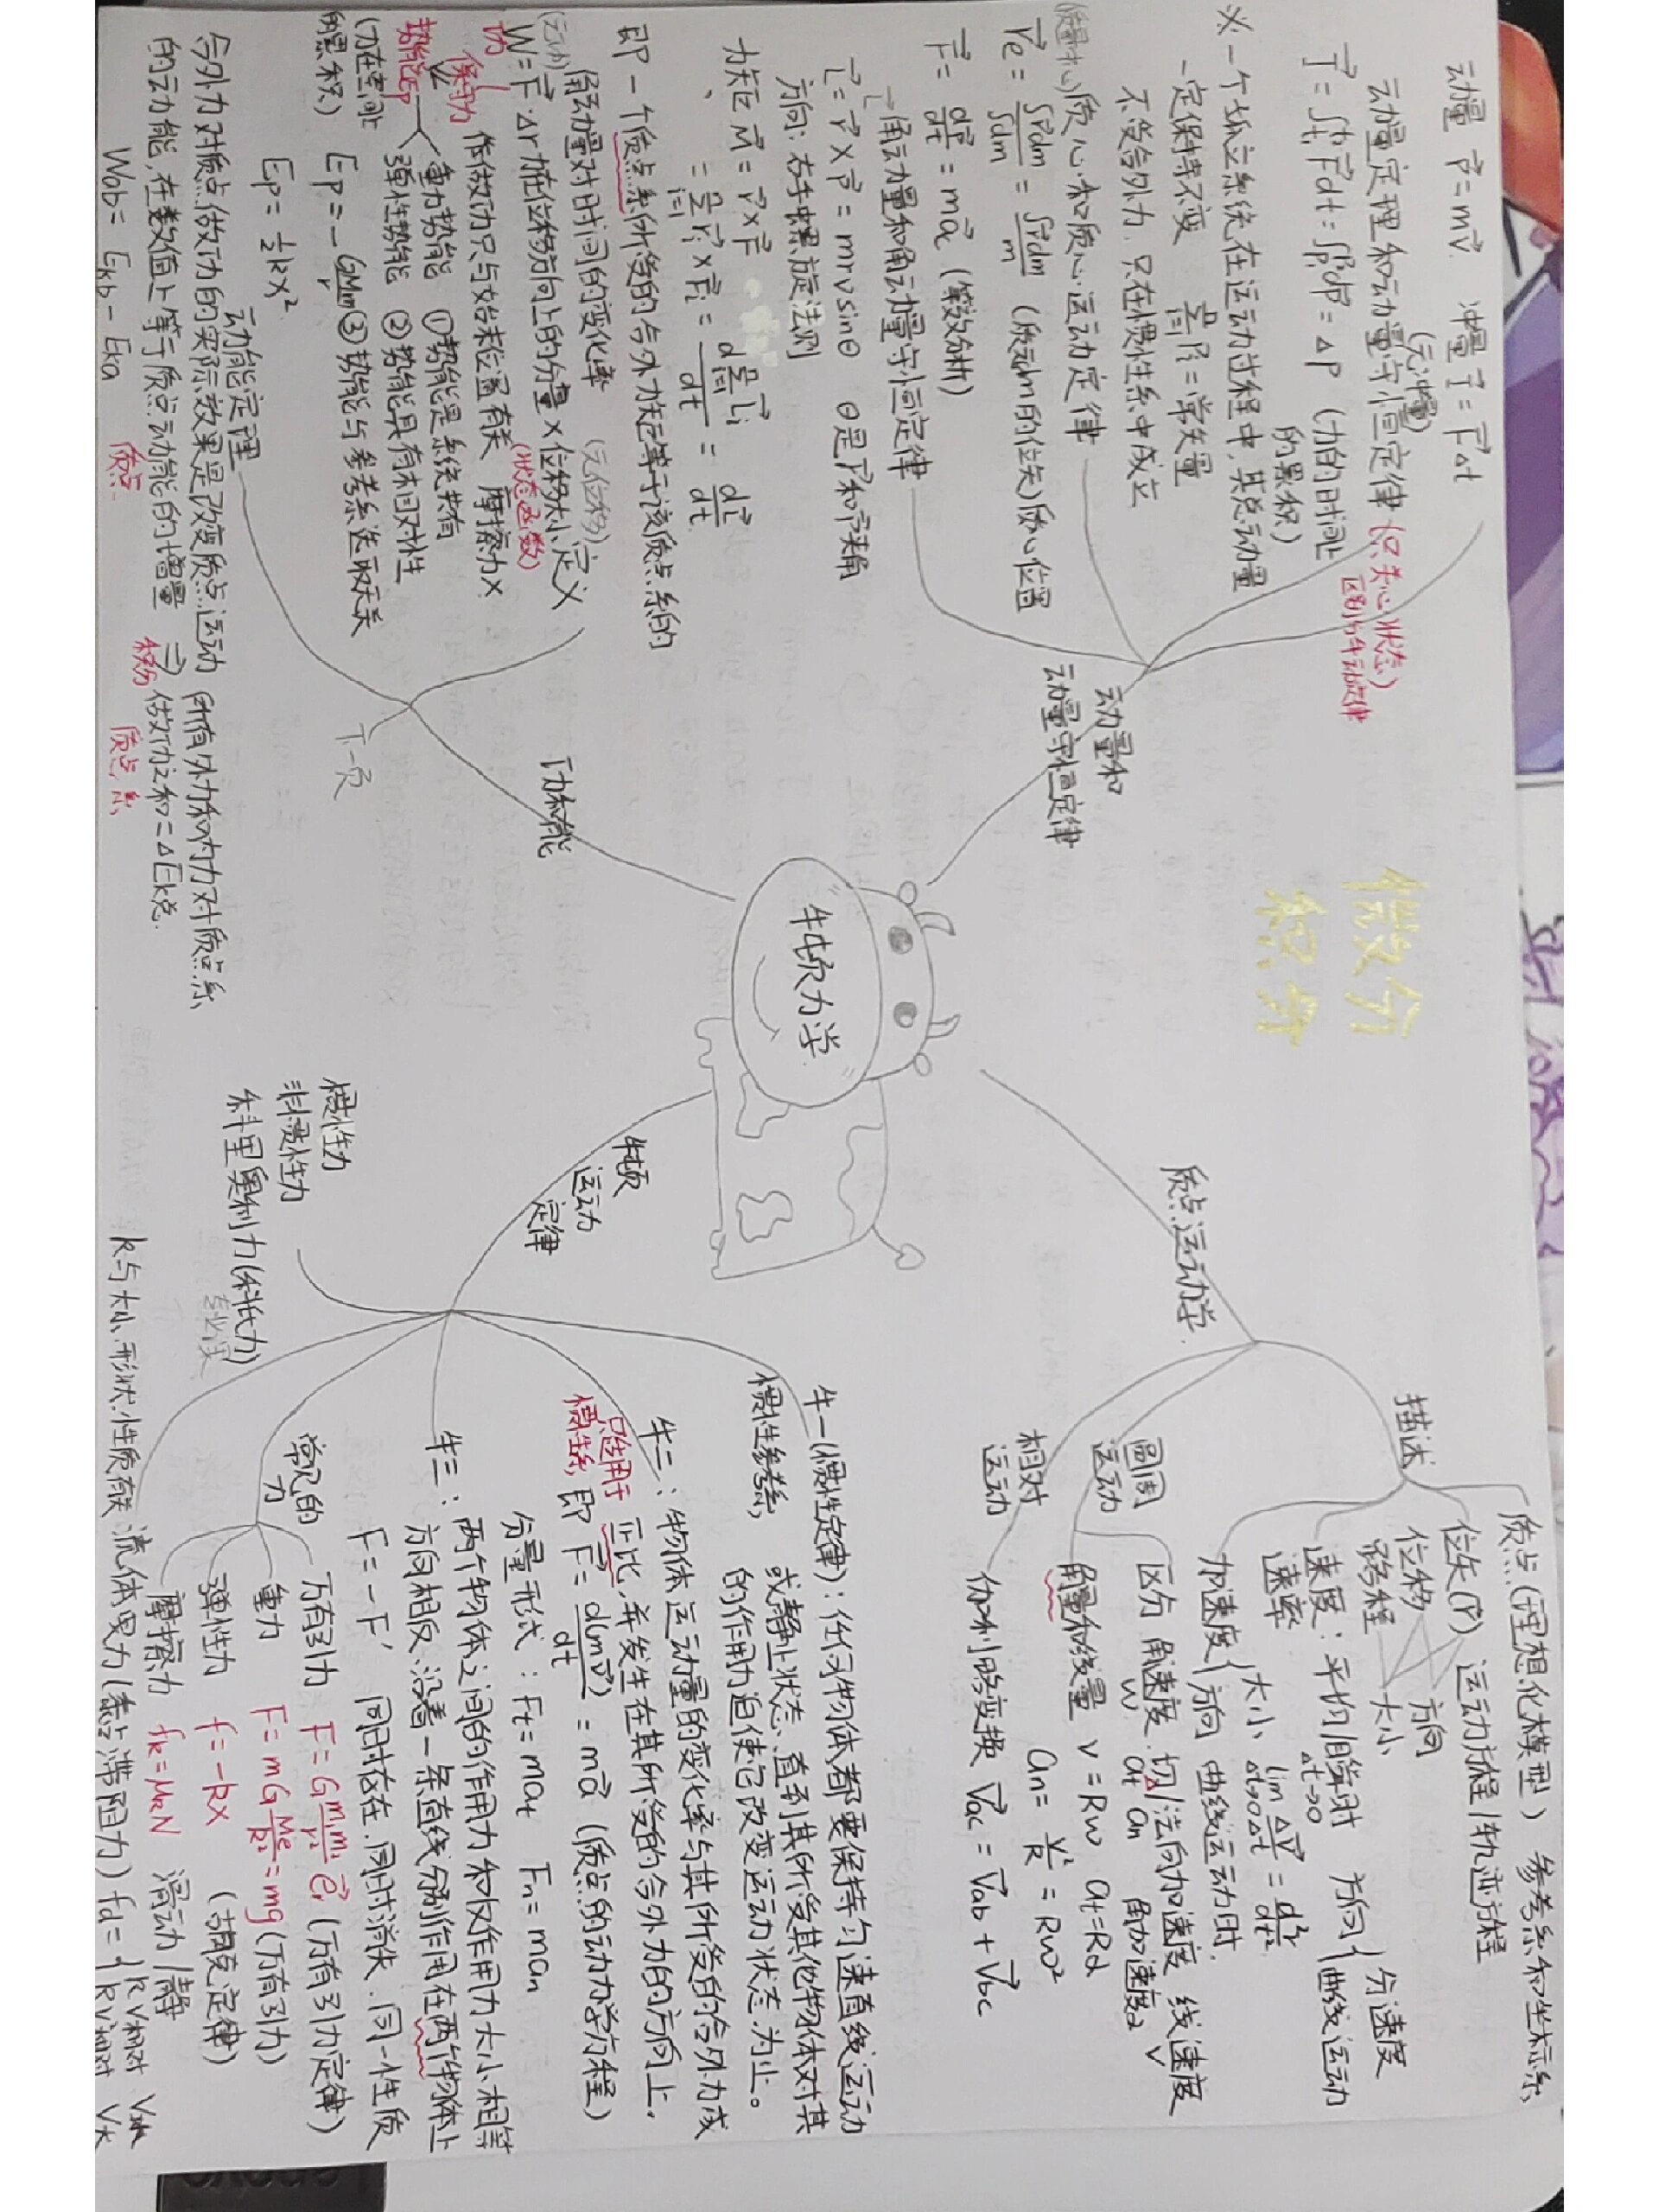 牛顿力学
微分
积分
动量和
动量守恒定律
动量 P⃗=mv⃗ 冲量 I⃗=F⃗Δt
(元冲量)
动量定理和动量守恒定律 (只关心状态)
区别与牛动定律
I⃗=∫F⃗dt=∫dP⃗=ΔP (力的时间
的累积)
※一个孤立系统在运动过程中,其总动量
一定保持不变
=常矢量
不受合外力,只在惯性系中成立
质心和质心运动定律
=∫r⃗dm/∫dm=∫r⃗dm/m (质元dm的位矢)质心位置
F⃗=dP⃗/dt=ma⃗c (等效分析)
角动量和角动量守恒定律
L⃗=r⃗×P⃗=mrvsinθ θ是r⃗和v⃗夹角
方向:右手螺旋法则
力矩M⃗=r⃗×F⃗
=dL⃗/dt
即一个质点系所受的合外力矩等于该质点系的
角动量对时间的变化率
功和能
(元位移)定义
W=F⃗·Δr 力在位移方向上的分量×位移大小
功
(力在空间上
的累积)
保守力 做功只与始末位置有关 摩擦力×
(状态函数)
势能Ep
重力势能 ①势能是系统共有
弹性势能 ②势能具有相对性
Ep=-GMm/r ③势能与参考系选取无关
Ep=½kx²
下一页
动能定理
合外力对质点做功的实际效果是改变质点运动
的动能,在数值上等于质点动能的增量
Wab=Ekb-Eka
质点
⇒
积分
所有外力和内力对质点系
做功之和=ΔEk总
质点系
质点运动学
描述
质点(理想化模型) 参考系和坐标系
位矢(r⃗) 运动方程/轨迹方程
位移 方向
路程 大小
速度:平均/瞬时 方向{分速度
Δt→0 曲线运动
速率
加速度{大小 lim Δt→0 Δv⃗/Δt=d²r/dt²
方向 曲线运动时
圆周
运动
区分 角速度 切/法向加速度 线速度
w at an 角加速度α v
角量和线量 v=Rw at=Rα
an=v²/R=Rw²
相对
运动
伽利略变换 V⃗ac=V⃗ab+V⃗bc
牛顿
运动
定律
牛一(惯性定律):任何物体都要保持匀速直线运动
惯性参考系, 或静止状态,直到其所受其他物体对其
的作用力迫使它改变运动状态为止。
牛二:物体运动量的变化率与其所受的合外力成
正比,并发生在其所受的合外力的方向上。
只适用于
惯性系,
即F⃗=d(mv⃗)/dt=ma⃗ (质点的动力学方程)
分量形式:Ft=mat Fn=man
牛三:两个物体之间的作用力和反作用力大小相等
方向相反、沿着一条直线分别作用在两个物体上
F=-F′ 同时存在.同时消失.同一性质
常见的
力
万有引力 F=Gm₁m₂/r² e⃗r (万有引力定律)
重力 F=mG Me/R²=mg (万有引力)
弹性力 f=-kx (胡克定律)
摩擦力 fk=μkN 滑动/静
流体曳力(黏滞阻力) fd={kv相对
kv²相对
k与大小,形状,性质有关
惯性力
非惯性力
科里奥利力(科氏力)